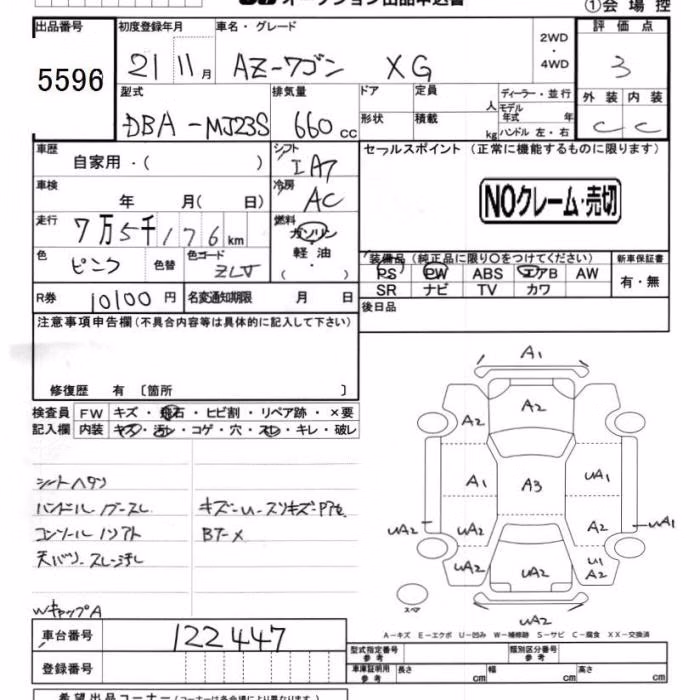 オークション出品申込書
①会場控
出品番号 初度登録年月 車名・グレード 2WD・4WD 評価点
5596 21 11月 AZ-ワゴン XG 3
型式 排気量 ドア 定員 人 ディーラー・並行 外装 内装
DBA-MJ23S 660cc 形状 積載 kg モデル年式 年 ハンドル 左・右 C C
車歴 自家用・( ) シフト IAT セールスポイント (正常に機能するものに限ります)
車検 年 月( 日) 冷房 AC NOクレーム・売切
走行 7万5千176km 燃料 ガソリン 軽油 ・( )
色 ピンク 色替 色コード ZLJ
装備品 (純正品に限り○をつけてください) 新車保証書
PS PW ABS エアB AW 有・無
SR ナビ TV カワ
R券 10100円 名変通知期限 月 日 後日品
注意事項申告欄(不具合内容等は具体的に記入して下さい)
修復歴 有 〔箇所 〕
検査員 FW キズ・飛石・ヒビ割・リペア跡・×要
記入欄 内装 キズ・汚レ・コゲ・穴・スレ・キレ・破レ
シートヘタリ
ハンドル
キズ-U-スリキズ
コンソール
BT-X
天バリ スレ汚レ
WキャップA
A1
A2
A2 A2
A1 A3 UA1
UA2 UA2 A2 UA1
UA2 UA2 U1 A2
スペア
UA2
A-キズ E-エクボ U-凹み W-補修跡 S-サビ C-腐食 XX-交換済
車台番号 122447
登録番号
型式指定番号 参考 類別区分番号 参考
車庫証明用 参考 長さ cm 幅 cm 高さ cm
希望出品コーナー(コーナーは各会場により異なります)